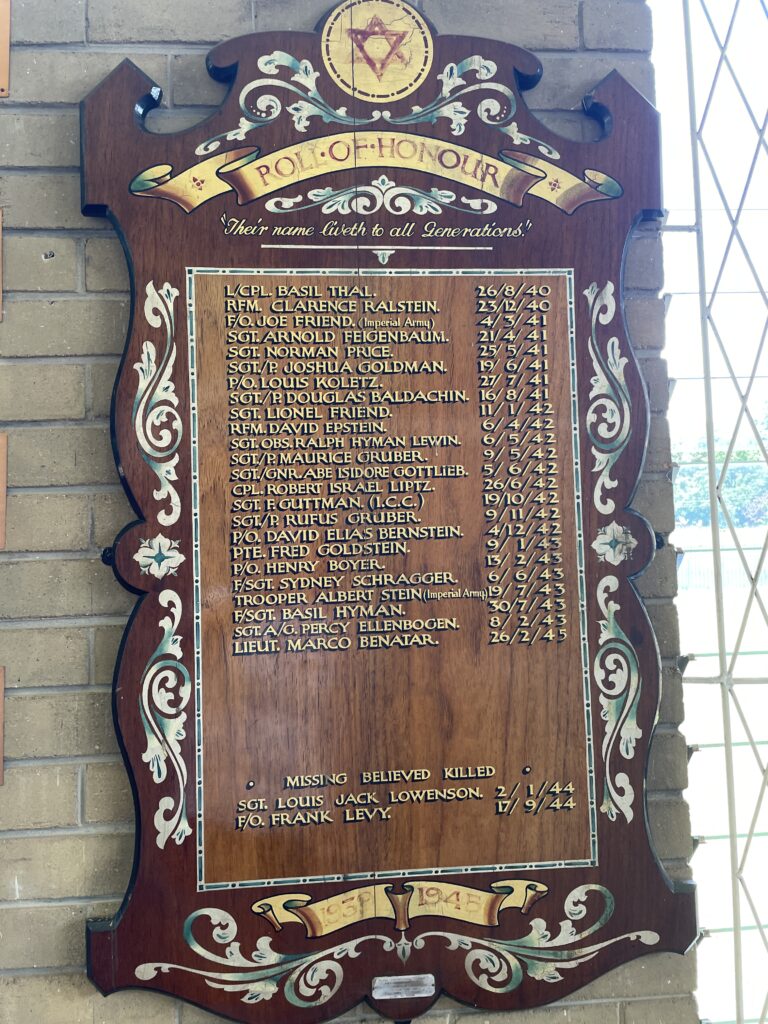 ROLL·OF·HONOUR
"Their name liveth to all Generations."
L/CPL. BASIL THAL. 26/8/40
RFM. CLARENCE RALSTEIN. 23/12/40
F/O. JOE FRIEND. (Imperial Army) 4/3/41
SGT. ARNOLD FEIGENBAUM. 21/4/41
SGT. NORMAN PRICE. 25/5/41
SGT./P. JOSHUA GOLDMAN. 19/6/41
P/O. LOUIS KOLETZ. 27/7/41
SGT./P. DOUGLAS BALDACHIN. 16/8/41
SGT. LIONEL FRIEND. 11/1/42
RFM. DAVID EPSTEIN. 6/4/42
SGT. OBS. RALPH HYMAN LEWIN. 6/5/42
SGT./P. MAURICE GRUBER. 9/5/42
SGT./GNR. ABE ISIDORE GOTTLIEB. 5/6/42
CPL. ROBERT ISRAEL LIPTZ. 26/6/42
SGT. F. GUTTMAN. (I.C.C.) 19/10/42
SGT./P. RUFUS GRUBER. 9/11/42
P/O. DAVID ELIAS BERNSTEIN. 4/12/42
PTE. FRED GOLDSTEIN. 9/1/43
P/O. HENRY BOYER. 13/2/43
F/SGT. SYDNEY SCHRAGGER. 6/6/43
TROOPER ALBERT STEIN (Imperial Army) 19/7/43
F/SGT. BASIL HYMAN. 30/7/43
SGT. A/G. PERCY ELLENBOGEN. 8/2/43
LIEUT. MARCO BENATAR. 26/2/45
• MISSING BELIEVED KILLED •
SGT. LOUIS JACK LOWENSON. 2/1/44
F/O. FRANK LEVY. 17/9/44
1939 1945